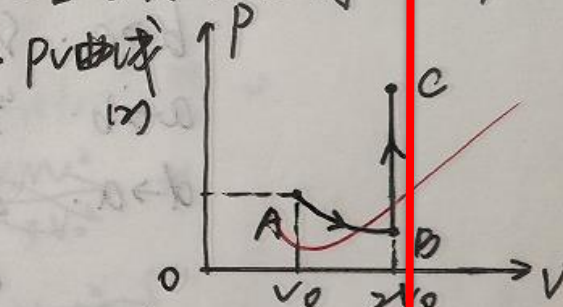 P
PV曲线
(2)
C
A
B
O
V₀
2V₀
V